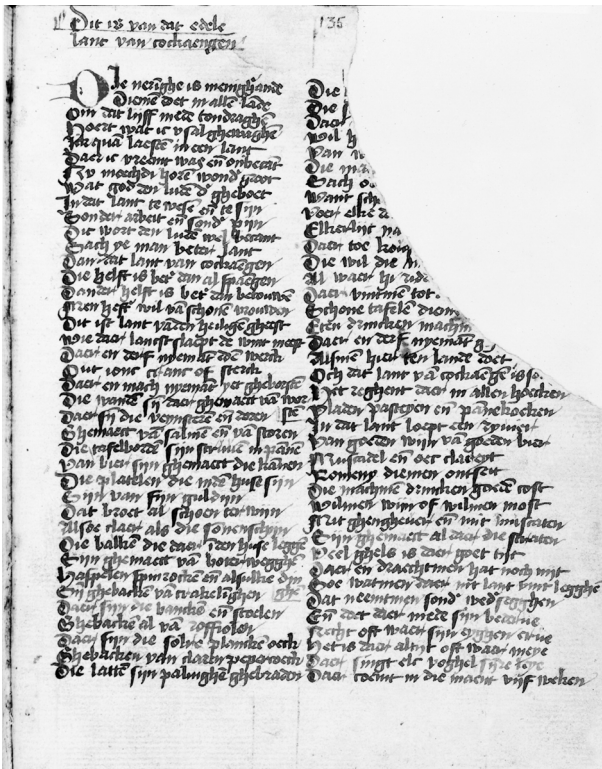 Dit is van dat edele
lant van cockaengen
135
Die neringhe is menigh hande
Diemē doet in allē lādē
Om dat lijff mede tondraghē
Hoert wat ic v sal ghewaghē
Ic quā laesten in een lant
Daer ic vreemt was eñ onbecāt
Nv moechdi horē wond' groot
Wat god den ludē d' gheboet
In dat lant te wesē eñ te sijn
Sonder arbeit eñ sond' pijn
Dit wort den ludē wel becant
Sach ye man beter lant
Dan dat lant van cockaengen
Die helft is bet' dan al spaengen
Dander helft is bet' dan betouwen
Mren heft wil vā schone vrouwen
Dit ist lant vāden heiligen gheest
Wie daer langst slaept die wint meest
Daer en derf nyemāt doē werck
Out ionc cranc of sterck
Daer en mach nyemāt yet ghebrekē
Die wande sijn daer ghemaect vā worsten
Daer sijn die veynsterē eñ doren
Ghemaect vā salmē eñ vā storen
Die tafelborde sijn struuē in pānē
Van bier sijn ghemaect die kānen
Die platelen die indē huse sijn
Sijn van fijn guldijn
Dat broet al schoen ter wijn
Alsoe claer als die sonenschijn
Die balkē die daer inden huse leggē
Sijn ghemaect vā boter wegghē
Haspelen spinrockē eñ alsulke din
Sijn ghebackē vā crakelighen
Daer sijn die banckē eñ stoelen
Ghebackē al vā roffiolen
Daer sijn die solre planckē oeck
Ghebacken van claren pepercoeck
Die lattē sijn palinghē ghebraden
Die
Die
Daer
Wil
Van
Die
Sach
Want
Voer elke
Elkerlint
Daer toe
Die wil die
Al waer hi ride
Daer vintmen tot
Schone tafelē
Eten drincken machm
Daer en derf nyemāt
Alsmē hier ten lande doet
Och dat lant vā cockaengē is so
Het reghent daer in allen hoeckē
Vladen pasteyen eñ pānekoecken
In dat lant loept een ryuier
Van goeden wijn vā goeden bier
Muscadel eñ oec clareyt
Romeny diemen ontseit
Die machmē drincken goedē cost
Wilmen wijn of wilmen most
Mit ghengheuer eñ mit muscaten
Sijn ghemaect al daer die straten
Veel ghels is daer goet tijt
Daer en draechtmen hat noch nijt
Soe watmen daer int lant vint legghē
Dat neemtmen sond' wed'segghen
Eñ doet daer mede sijn
Recht oft waer sijn eyghen erue
Het is daer altijt oft waer meye
Daer singt elc voghel sijre
Daer coemt in die maent vijf weken